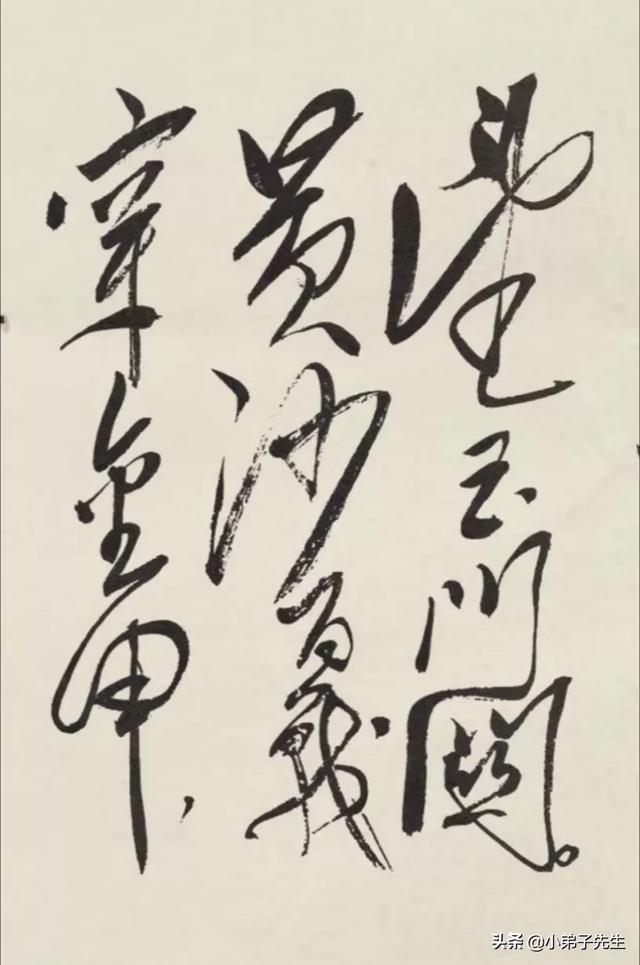 望玉门關。
黄沙百戰
穿金甲,
头条 @小弟子先生